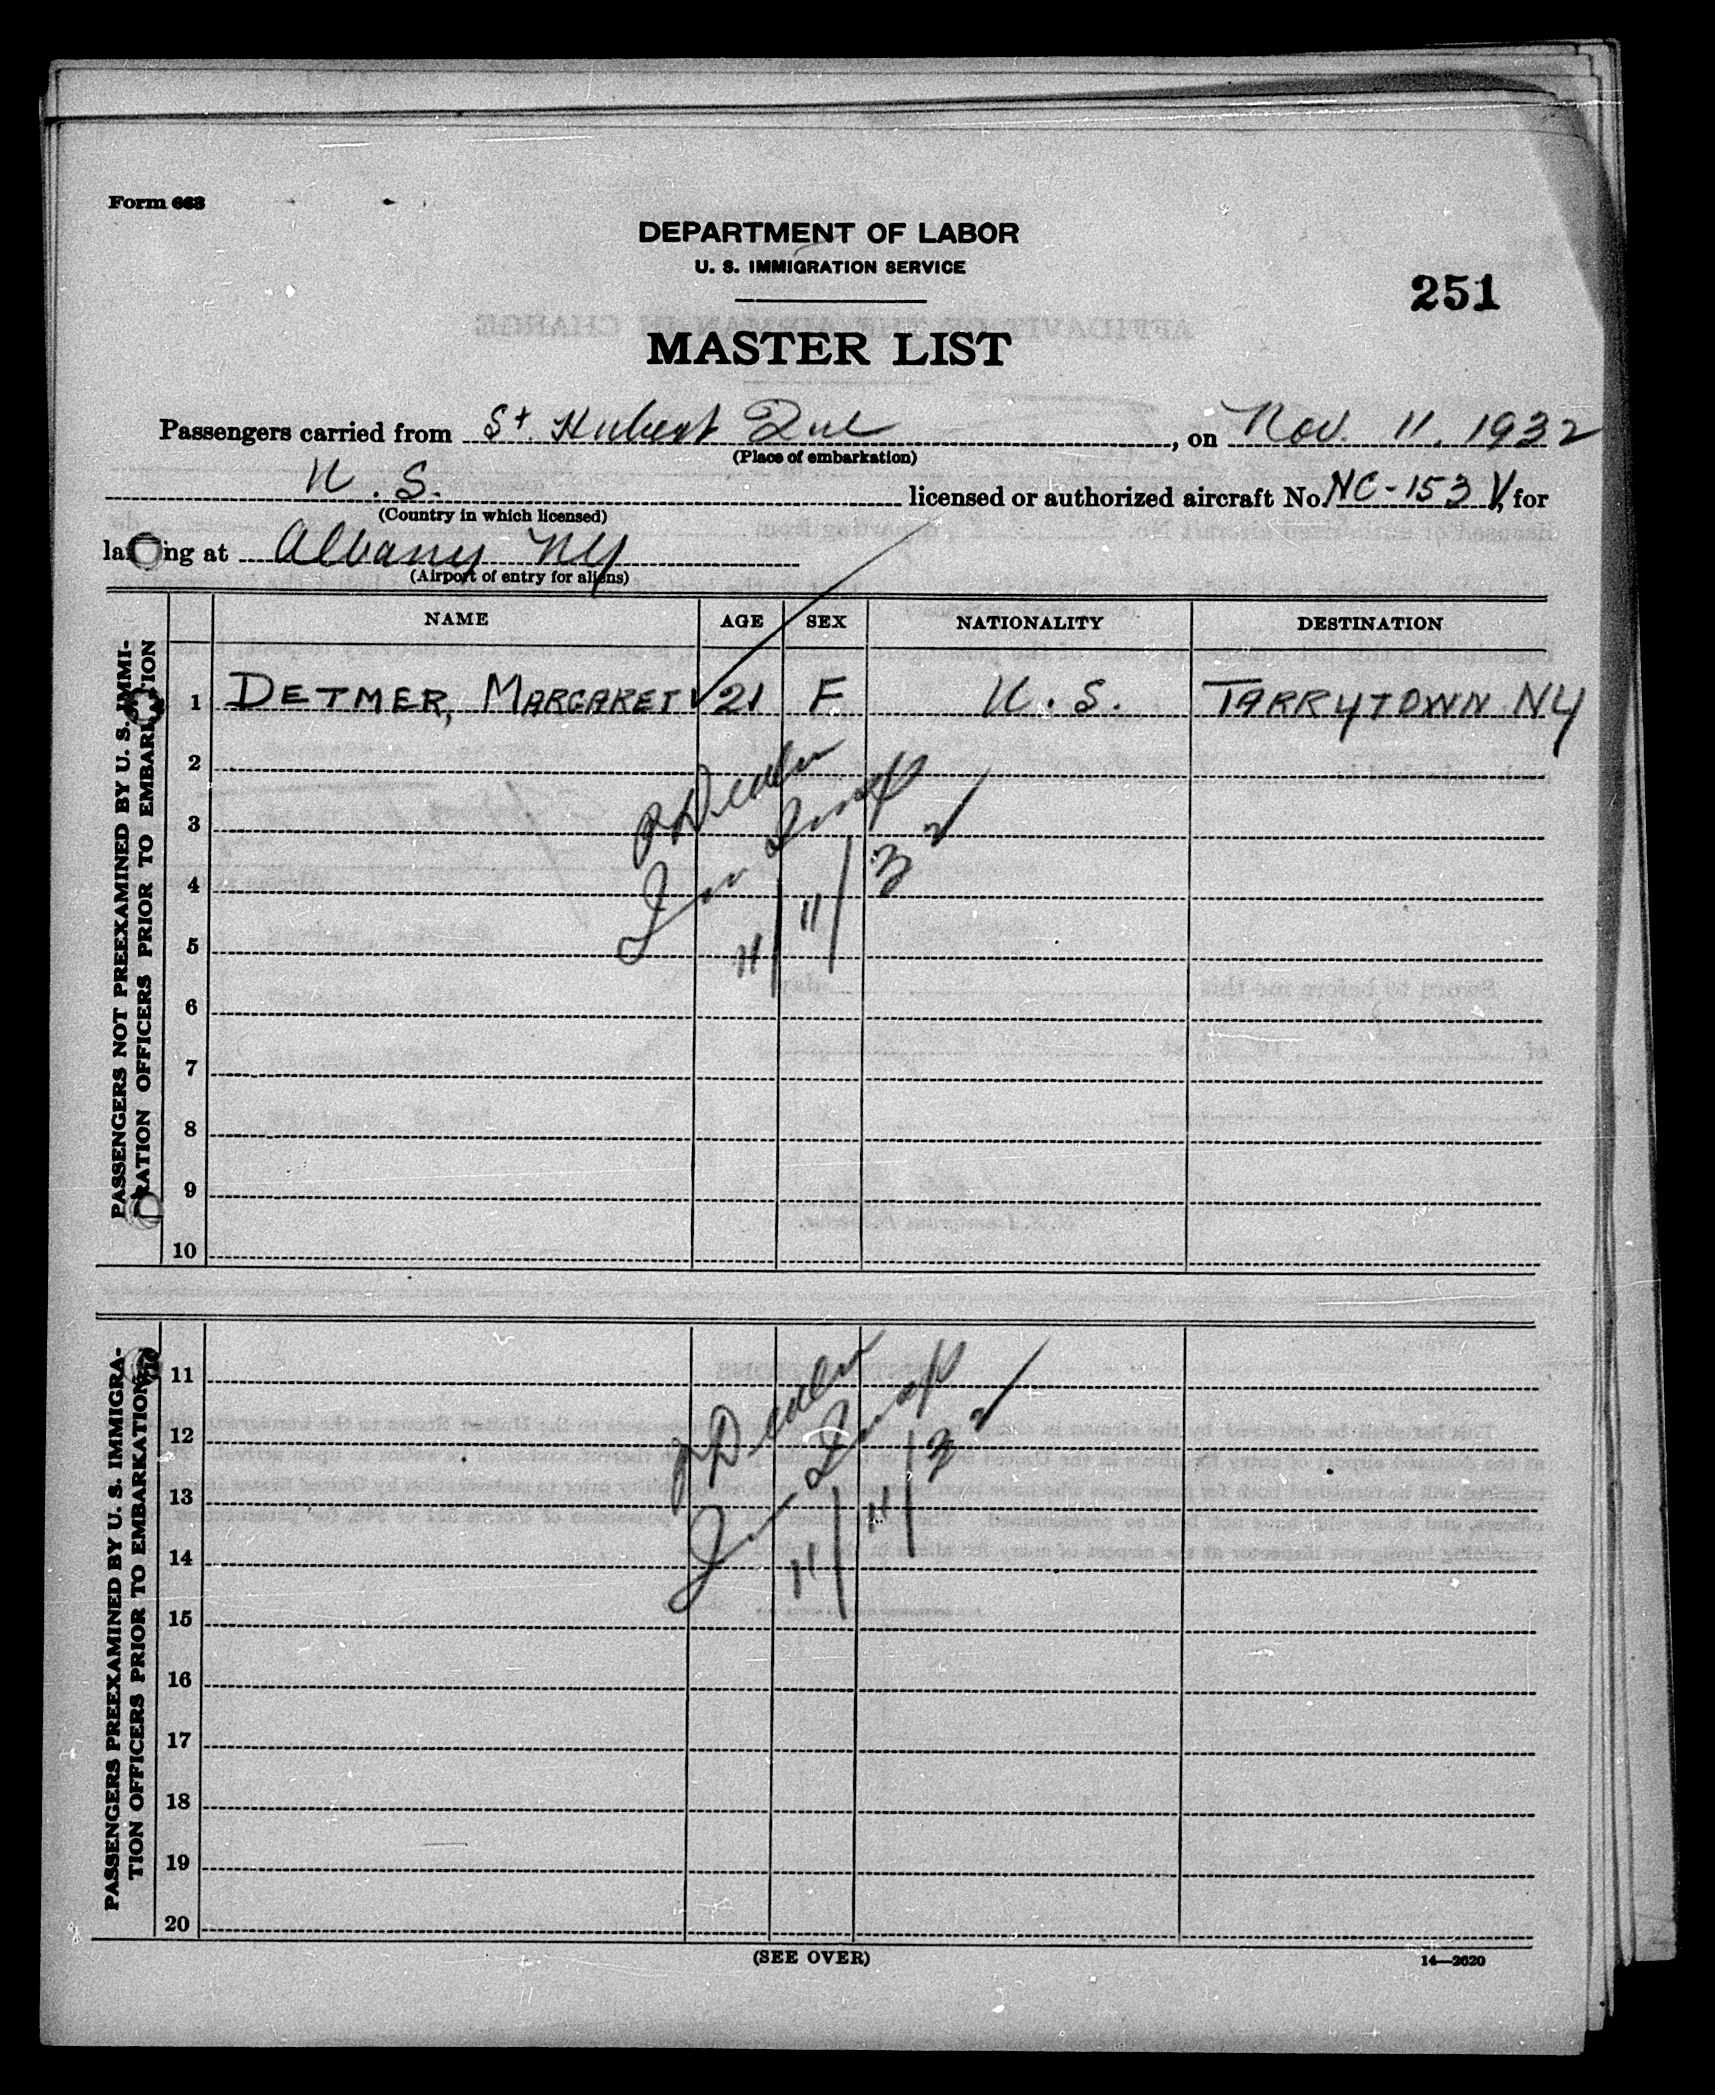 Form 663
DEPARTMENT OF LABOR
U. S. IMMIGRATION SERVICE
251
MASTER LIST
Passengers carried from St. Hubert Que, on Nov. 11. 1932
(Place of embarkation)
U. S. licensed or authorized aircraft No. NC-153 V, for
(Country in which licensed)
landing at Albany NY
(Airport of entry for aliens)
NAME AGE SEX NATIONALITY DESTINATION
PASSENGERS NOT PREEXAMINED BY U. S. IMMI-
GRATION OFFICERS PRIOR TO EMBARKATION
1 DETMER, MARGARET 21 F U. S. TARRYTOWN NY
2
3
4
5
11/11/32
6
7
8
9
10
PASSENGERS PREEXAMINED BY U. S. IMMIGRA-
TION OFFICERS PRIOR TO EMBARKATION
11
12
13
14
11/11/32
15
16
17
18
19
20
(SEE OVER)
14—2620